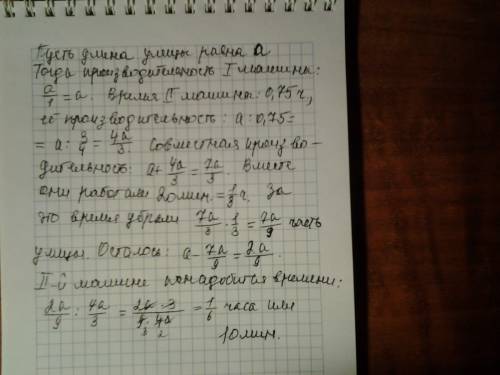 Пусть длина улицы равна a
Тогда производительность I машины:
a/1 = a. Время II машины: 0,75 ч,
её производительность: a : 0,75 =
= a : 3/4 = 4a/3 Совместная произво-
дительность: a + 4a/3 = 7a/3. Вместе
они работали 20 мин. = 1/3 ч. За
это время убрали 7a/3 · 1/3 = 7a/9 часть
улицы. Осталось: a - 7a/9 = 2a/9.
II-й машине понадобится времени:
2a/9 : 4a/3 = 2a · 3/9 · 4a = 1/6 часа или
3 2
10 мин.